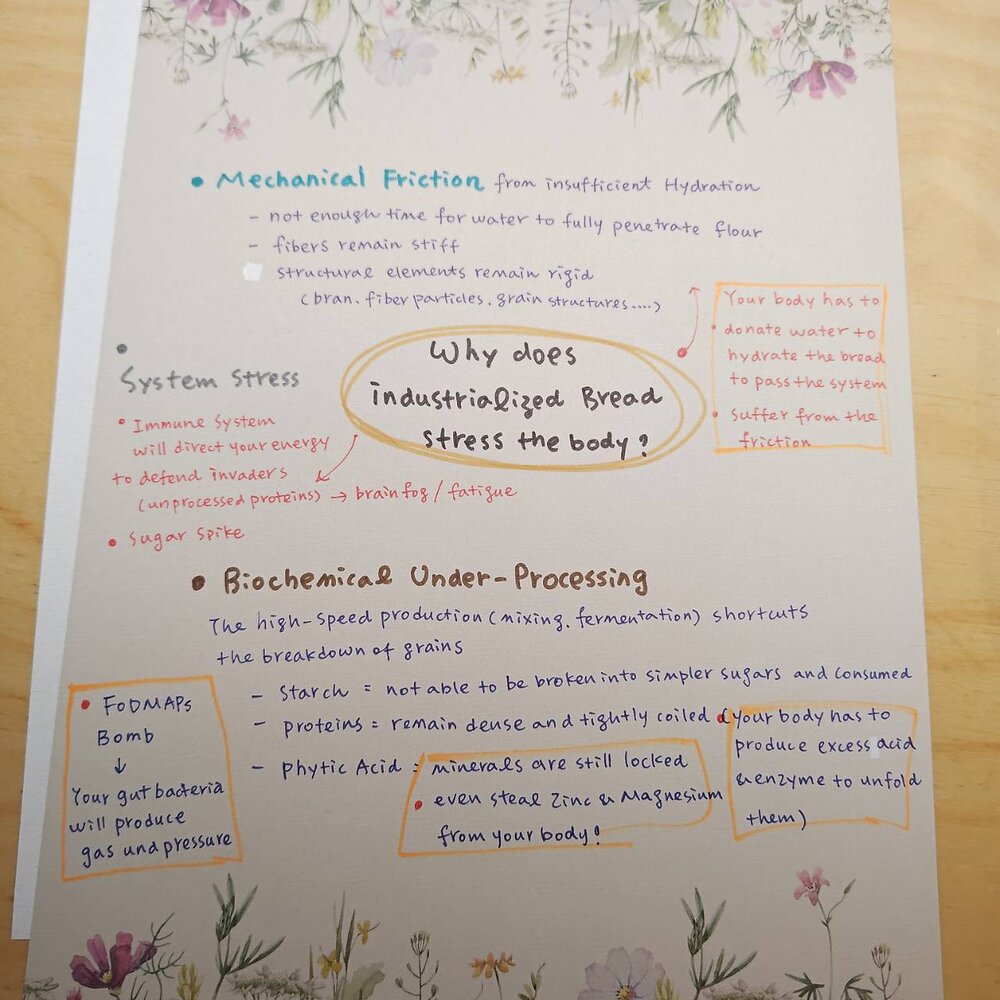 • Mechanical Friction from insufficient Hydration
- not enough time for water to fully penetrate flour
- fibers remain stiff
structural elements remain rigid
(bran. fiber particles. grain structures....)
Your body has to
• donate water to
hydrate the bread
to pass the system
• suffer from the
friction
Why does
industrialized Bread
stress the body?
•
System Stress
• Immune System
will direct your energy
to defend invaders
(unprocessed proteins) → brain fog / fatigue
• Sugar Spike
• Biochemical Under-Processing
The high-speed production (mixing. fermentation) shortcuts
the breakdown of grains
- Starch = not able to be broken into simpler sugars and consumed
- proteins = remain dense and tightly coiled (your body has to
produce excess acid
& enzyme to unfold
them)
- Phytic Acid : minerals are still locked
• even steal Zinc & Magnesium
from your body!
• FODMAPs
Bomb
↓
Your gut bacteria
will produce
gas und pressure